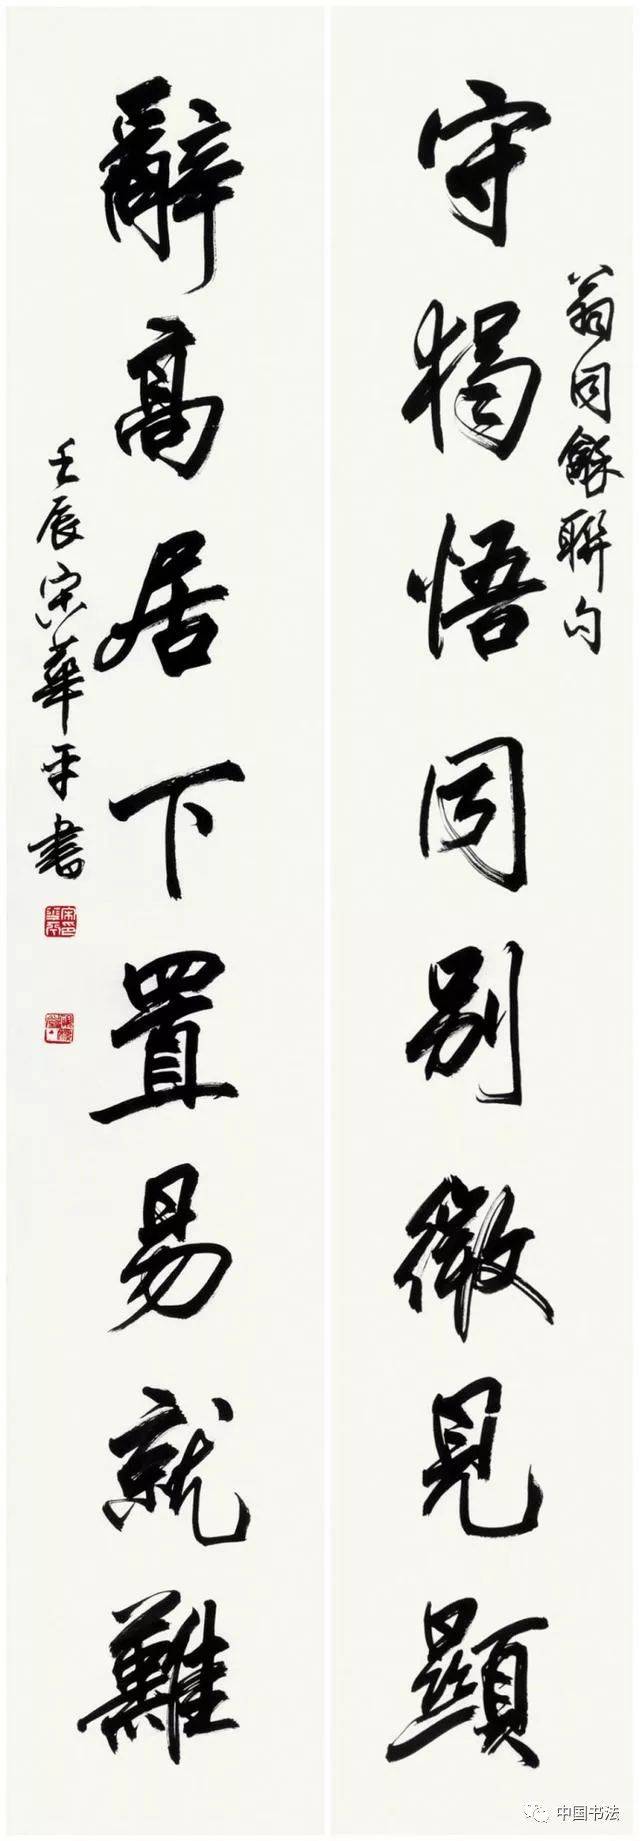 守獨悟同別微見顯
翁同龢聯句
辭高居下置易就難
壬辰宋華平書
中国书法